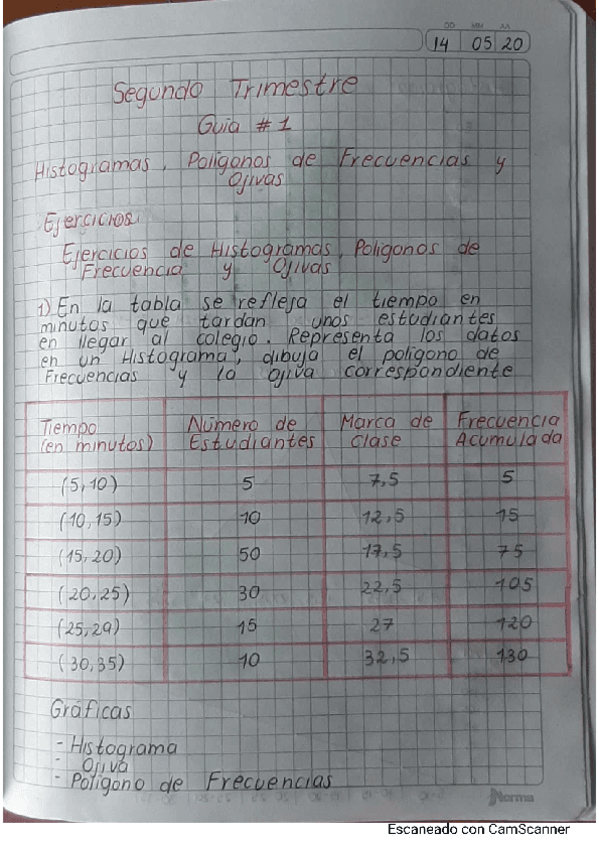 DD MM AA
14 05 20
Segundo Trimestre
Guia # 1
Histogramas, Poligonos de Frecuencias y
Ojivas
Ejercicios:
Ejercicios de Histogramas, Poligonos de
Frecuencia y Ojivas
1) En la tabla se refleja el tiempo en
minutos que tardan unos estudiantes
en llegar al colegio. Representa los datos
en un Histograma, dibuja el poligono de
Frecuencias y la Ojiva correspondiente
Tiempo (en minutos) Número de Estudiantes Marca de Clase Frecuencia Acumulada
(5,10) 5 7,5 5
(10,15) 10 12,5 15
(15,20) 50 17,5 75
(20,25) 30 22,5 105
(25,29) 15 27 120
(30,35) 10 32,5 130
Gráficas
- Histograma
- Ojiva
- Poligono de Frecuencias
Norma
Escaneado con CamScanner